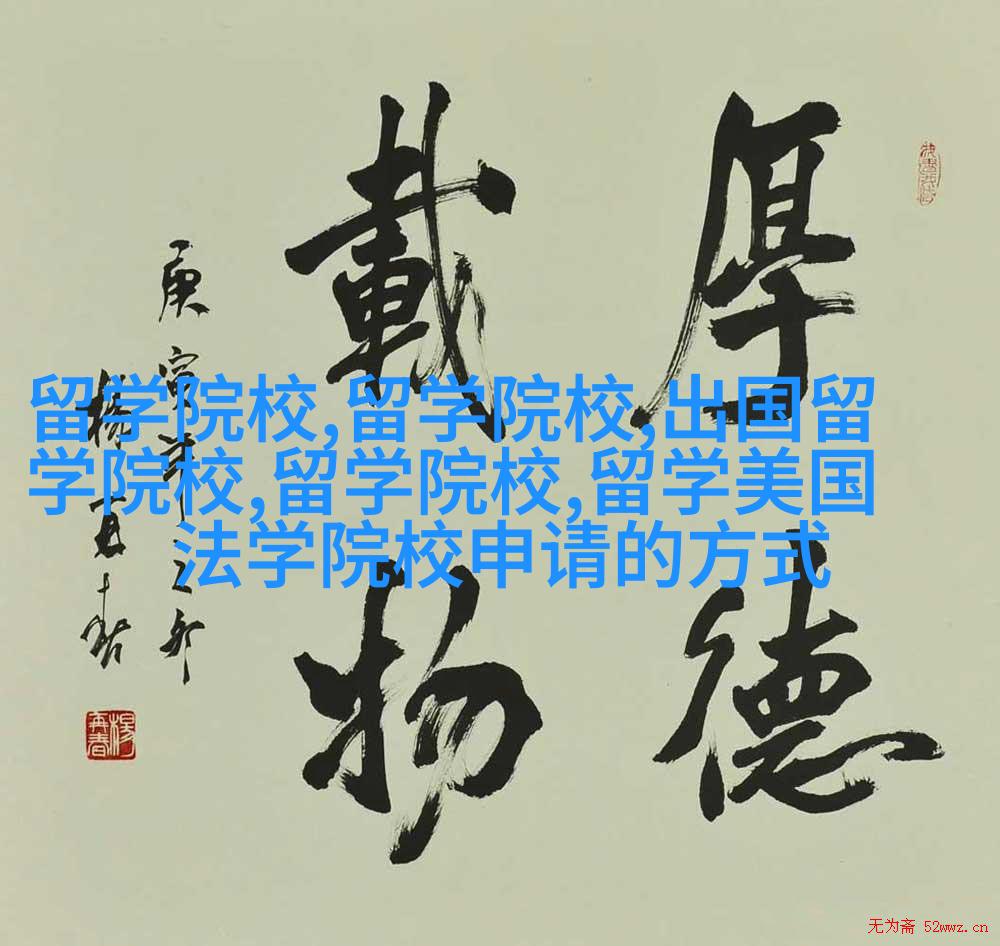 厚德
載物
庚寅年
楊再春
楊再春
留学院校,留学院校,出国留
学院校,留学院校,留学美国
法学院校申请的方式
无为斋 52wwz.cn